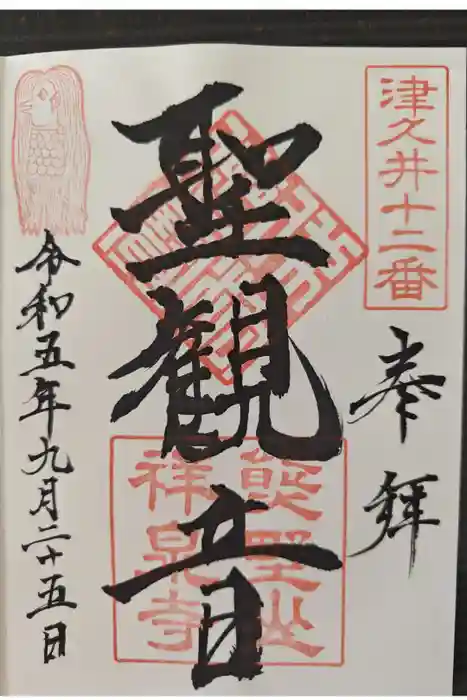 津久井十二番
奉拝
聖観音
熊野山
祥泉寺
令和五年九月二十五日